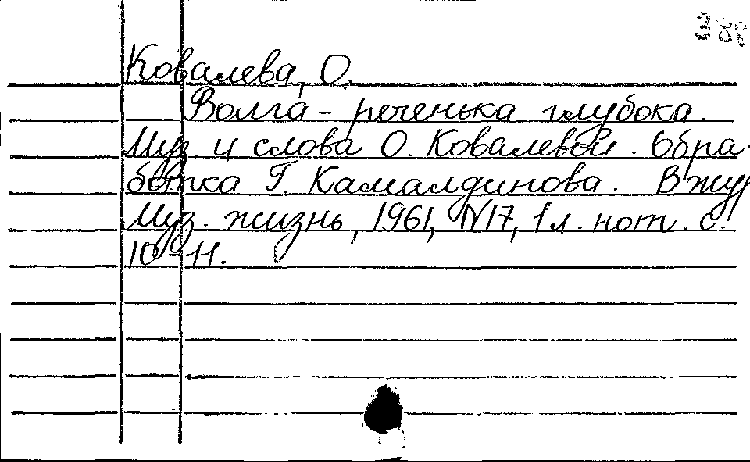 388
Ковалева, О.
Волга - реченька глубока.
Муз. и слова О. Ковалевой. Обра-
ботка Г. Камалдинова. В жур
Муз. жизнь, 1961, №17, 1 л. нот. с.
10-11.